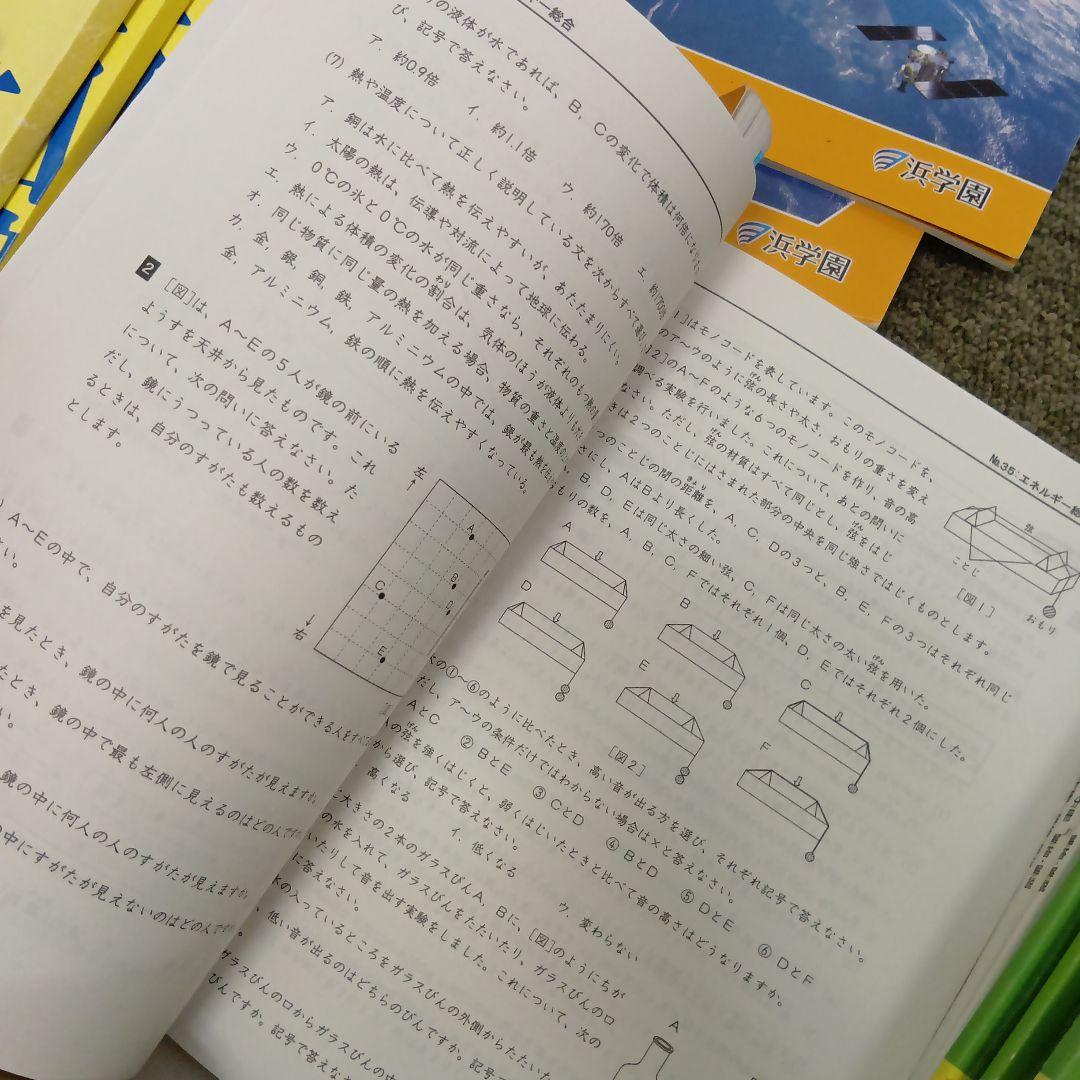 ー総合
の液体が水であれば、B、Cの変化で体積は何倍にな
び、記号で答えなさい。
ア．約0.9倍　イ．約1.1倍　ウ．約170倍　エ．約1700倍
(7) 熱や温度について正しく説明している文を次からすべて選び
ア．銅は水に比べて熱を伝えやすいが、あたたまりにくい。
イ．太陽の熱は、伝導や対流によって地球に伝わる。
ウ．0℃の氷と0℃の水が同じ重さなら、それぞれのもつ熱の
エ．熱による体積の変化の割合は、気体のほうが液体より
オ．同じ物質に同じ量の熱を加える場合、物質の重さと温度の
カ．金、銀、銅、鉄、アルミニウムの中では、銀が最も熱を
金、アルミニウム、鉄の順に熱を伝えやすくなっている。
2 [図]は、A～Eの5人が鏡の前にいる
ようすを天井から見たものです。これ
について、次の問いに答えなさい。た
だし、鏡にうつっている人の数を数え
るときは、自分のすがたも数えるもの
とします。
左
A
B
C
D
E
右
A～Eの中で、自分のすがたを鏡で見ることができる人をすべて
さい。
を見たとき、鏡の中に何人の人のすがたが見えますか。
たとき、鏡の中で最も左側に見えるのはどの人ですか
い。
鏡の中に何人の人のすがたが見えますか
中にすがたが見えないのはどの人ですか
浜学園
浜学園
No.35:エネルギー総
]はモノコードを表しています。このモノコードを、
のア～ウのように弦の長さや太さ、おもりの重さを変え
2]のA～Fのような6つのモノコードを作り、音の高
調べる実験を行いました。これについて、あとの問いに
なさい。ただし、弦の材質はすべて同じとし、弦をはじ
きは2つのことじにはさまれた部分の中央を同じ強さではじくものとします。
つのことじの間の距離を、A、C、Dの3つと、B、E、Fの3つはそれぞれ同じ
さにし、AはBより長くした。
B、D、Eは同じ太さの細い弦、C、Fは同じ太さの太い弦を用いた。
もりの数を、A、B、C、Fではそれぞれ1個、D、Eではそれぞれ2個にした。
弦
ことじ
おもり
[図1]
A
B
C
D
E
F
[図2]
次の①～⑥のように比べたとき、高い音が出る方を選び、それぞれ記号で答えなさい。
だし、ア～ウの条件だけではわからない場合は×と答えなさい。
AとC　② BとE　③ CとD　④ BとD　⑤ DとE　⑥ DとF
の弦を強くはじくと、弱くはじいたときと比べて音の高さはどうなりますか。
から選び、記号で答えなさい。
高くなる　イ．低くなる　ウ．変わらない
大きさの2本のガラスびんA、Bに、[図]のようにちが
の水を入れて、ガラスびんをたたいたり、ガラスびんの口
いたりして音を出す実験をしました。これについて、次の
に答えなさい。
水の入っているところをガラスびんの外側からたたいた
、低い音が出るのはどちらのびんですか。記号
ガラスびんの口からガラスびんの中
びんですか。記号で答えな
A